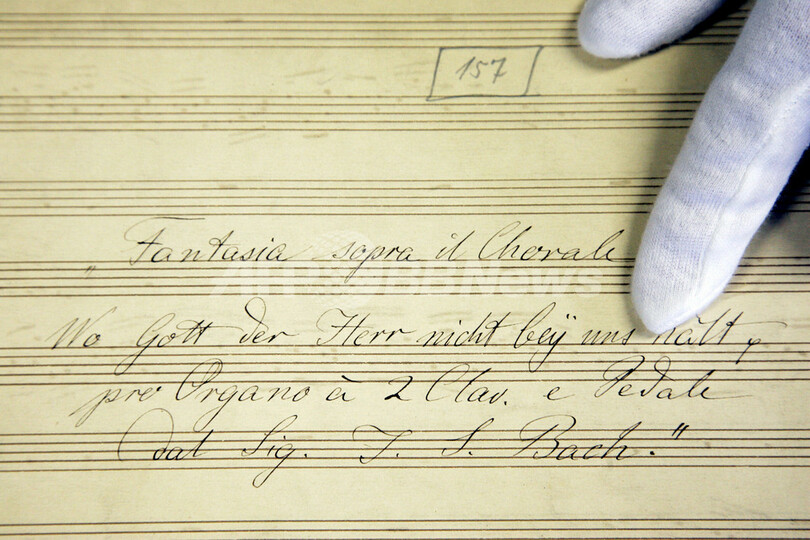 157
„Fantasia sopra il Chorale
Wo Gott der Herr nicht beÿ uns hält,
pro Organo à 2 Clav. e Pedale
dal Sig. J. S. Bach."
AFPBBNews